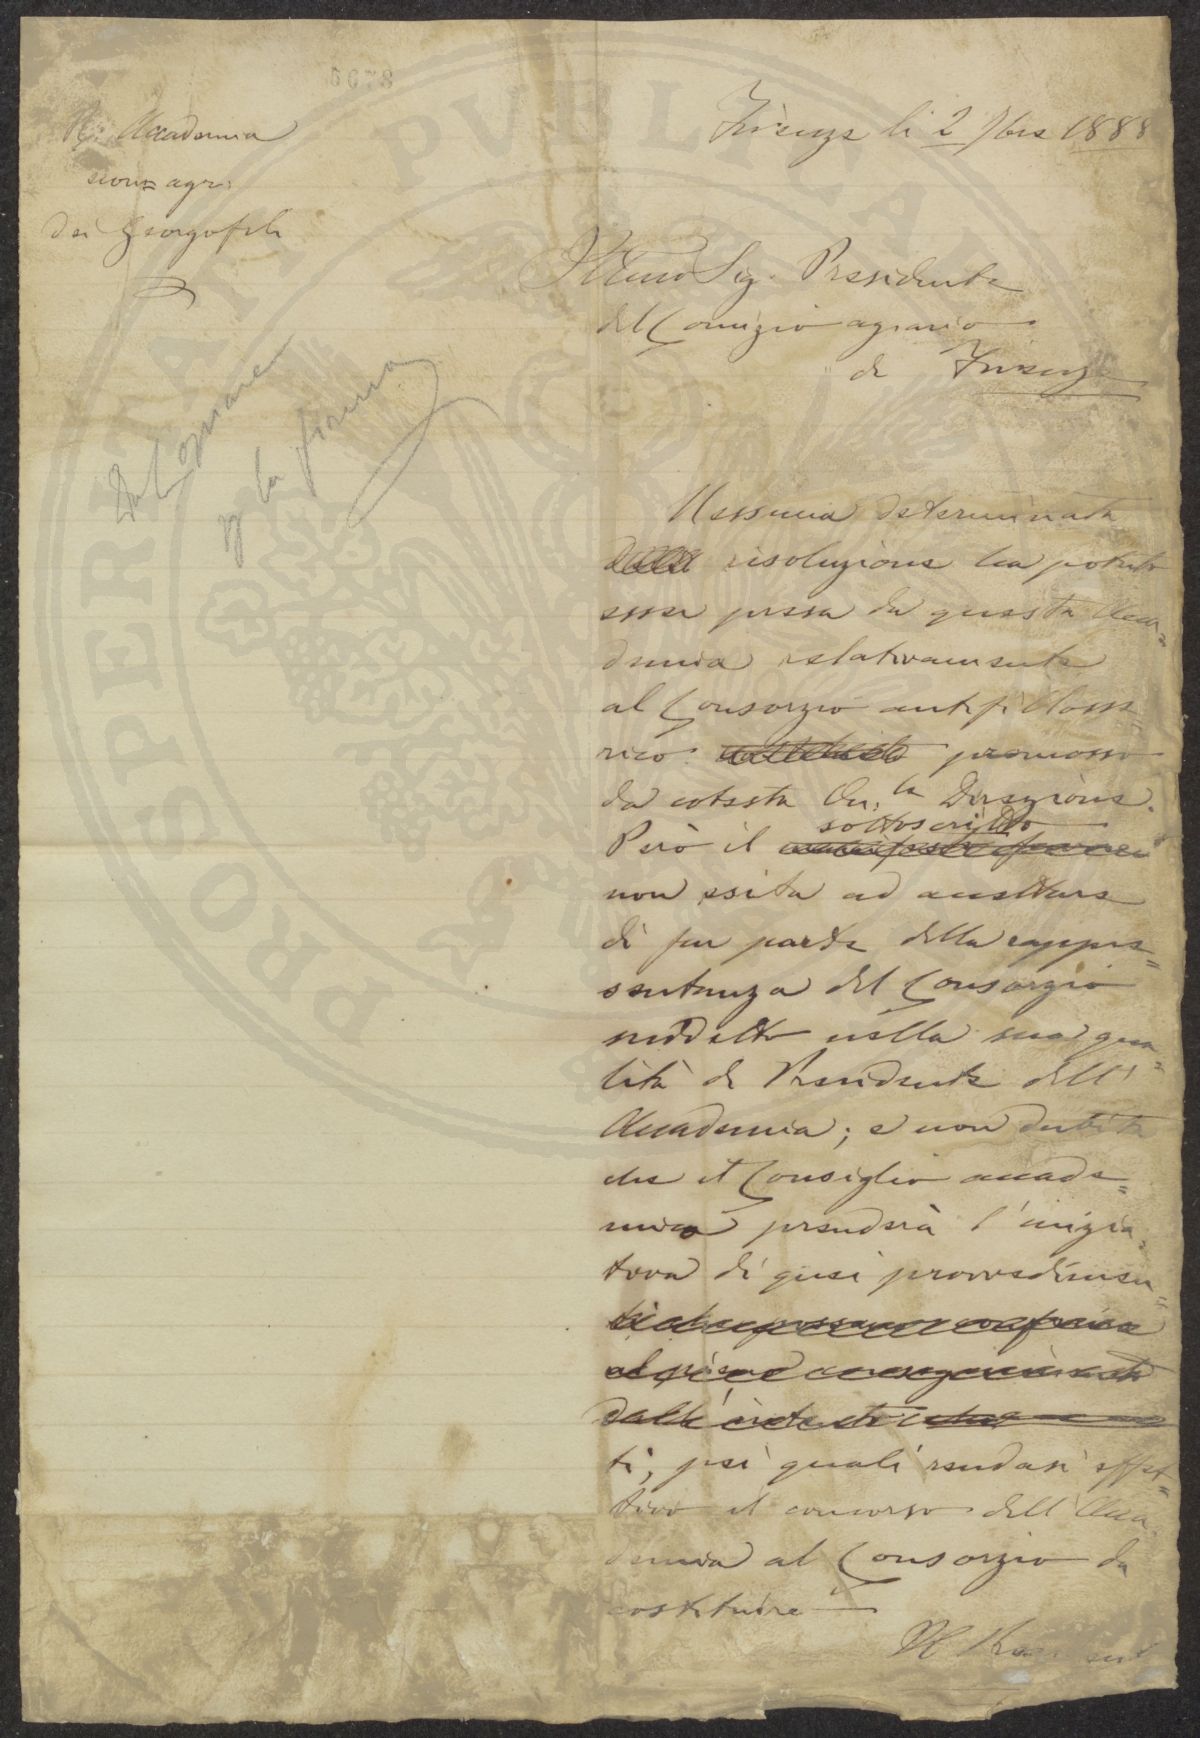 5678
R. Accademia
econ= agr:
dei Georgofili
Firenze li 2 7bre 1888
Illmo Sig. Presidente
del Comizio agrario
di Firenze
la firma
Nessuna determinata
risoluzione ha potuto
esser presa da questa Acca=
demia relativamente
al Consorzio antifillosse=
rico promosso
da cotesta On.la Direzione.
Però il sottoscritto
non esita ad accettare
di far parte della rappre=
sentanza del Consorzio
suddetto nella sua qua=
lità di Presidente dell'
Accademia; e non dubita
che il Consiglio accade=
mico prenderà l'inizia=
tiva di quei provvedimen=
ti, pei quali rendasi effet=
tivo il concorso dell'Acca=
demia al Consorzio da
costituire
Il Presidente
PROSPERITATI PVBLICAE